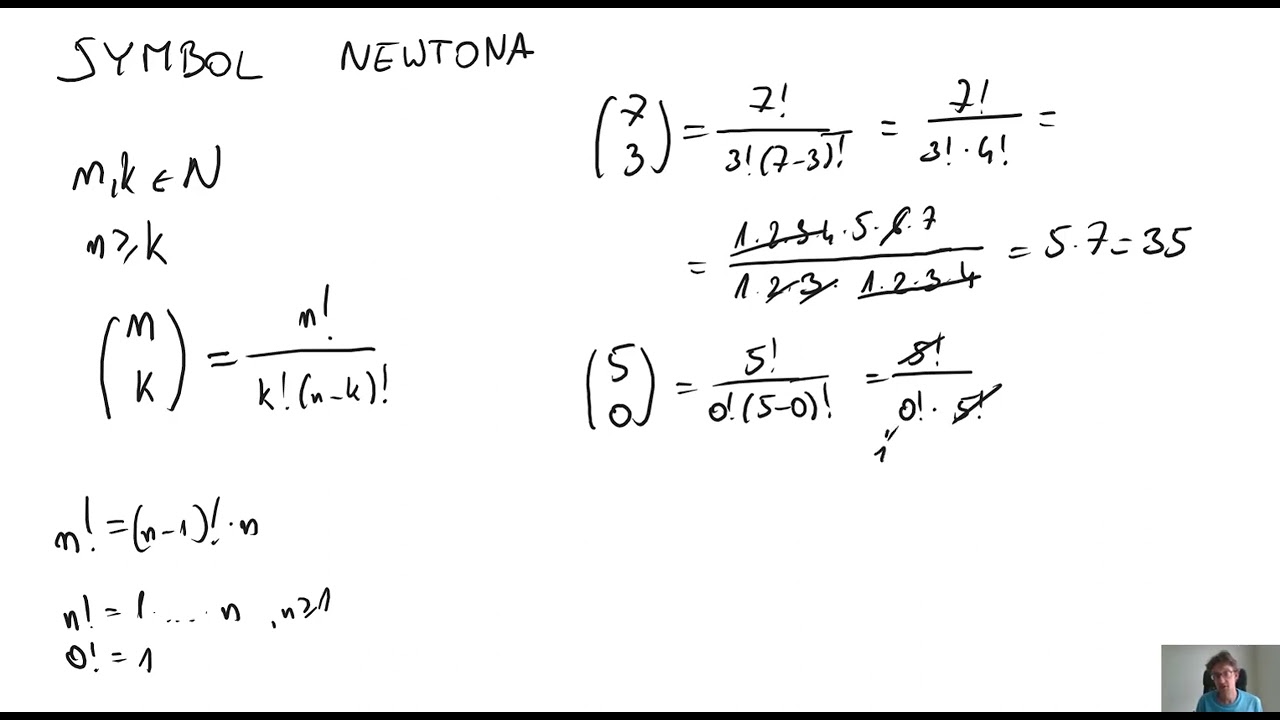 SYMBOL NEWTONA
n,k ∈ N
n ≥ k
(n k) = n! / k!(n-k)!
n! = (n-1)! · n
n! = 1 · .... · n , n ≥ 1
0! = 1
(7 3) = 7! / 3!(7-3)! = 7! / 3! · 4! =
= 1·2·3·4·5·6·7 / 1·2·3· 1·2·3·4 = 5·7 = 35
(5 0) = 5! / 0!(5-0)! = 5! / 0! · 5!
1